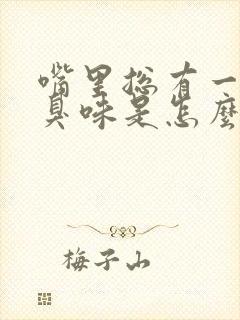 嘴里总有一
臭味是怎麼
梅子山